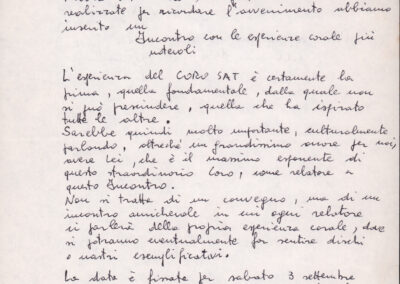 realizzate per ricordare l'avvenimento abbiamo
inserito un
Incontro con le esperienze corale più
notevoli
L'esperienza del CORO SAT è certamente la
prima, quella fondamentale, dalla quale non
si può prescindere, quella che ha ispirato
tutte le altre.
Sarebbe quindi molto importante, culturalmente
parlando, oltreché un grandissimo onore per noi,
avere Lei, che è il massimo esponente di
questo straordinario Coro, come relatore a
questo Incontro.
Non si tratta di un convegno, ma di un
incontro amichevole in cui ogni relatore
ci parlerà della propria esperienza corale, dove
si potranno eventualmente far sentire dischi
o nastri esemplificativi.
La data è fissata per sabato 3 settembre